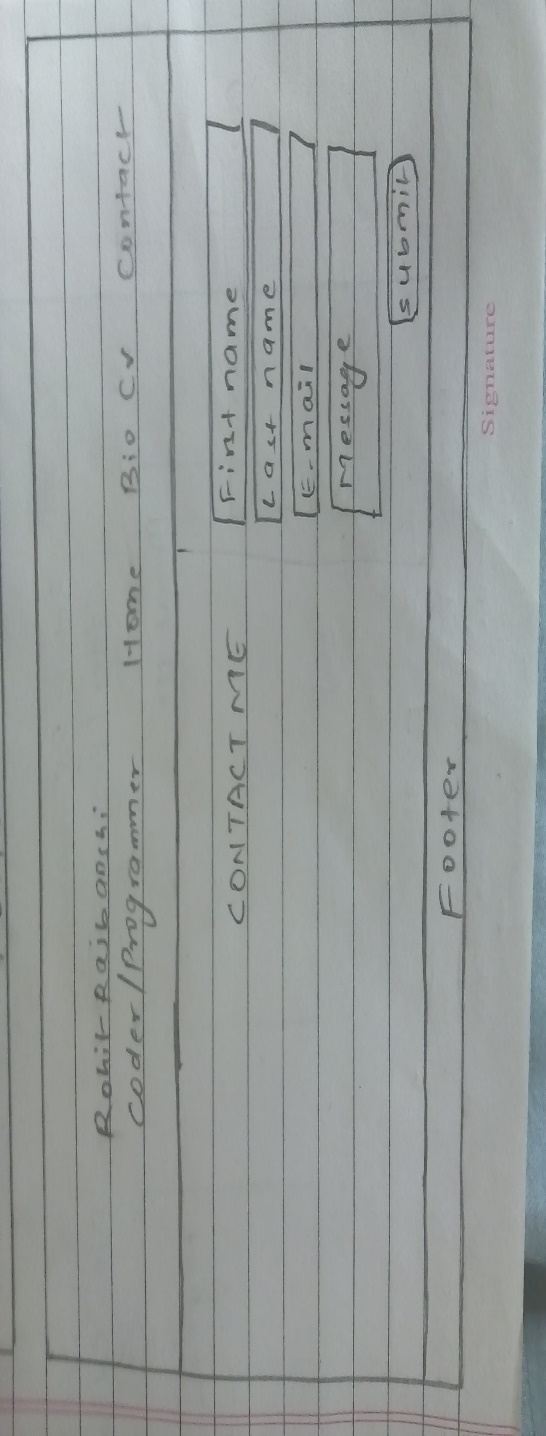 Rohit Rajbanshi
Coder/Programmer Home Bio CV Contact
CONTACT ME
First name
Last name
E-mail
Message
submit
Footer
Signature